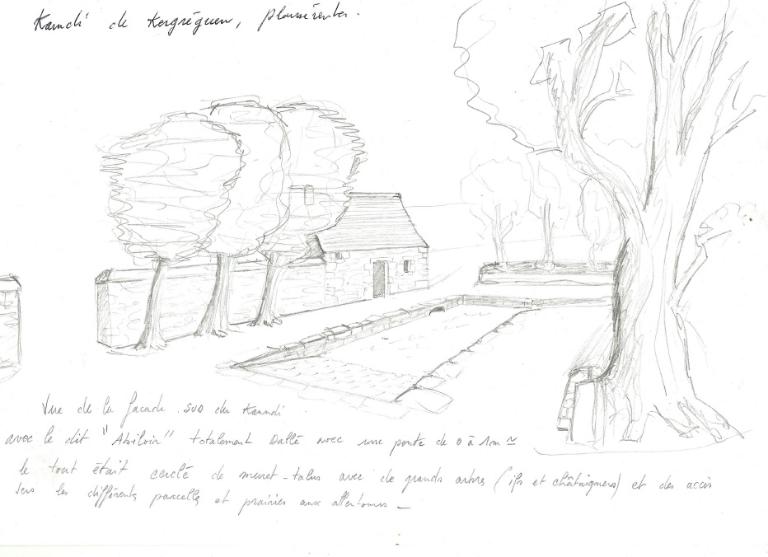 Kanndi de Kergréguen, Plounérin
Vue de la façade SUD du Kanndi
avec le dit "Abiloir" totalement Dallé avec une pente de 0 à 1m ≃
le tout était cerclé de muret-talus avec de grands arbres (ifs et châtaigniers) et des accès
vers les différents parcelles et prairies aux allentours —